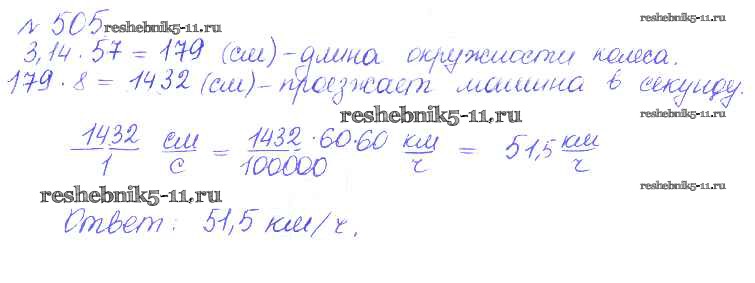 № 505 reshebnik5-11.ru reshebnik5-11.ru
3,14 · 57 = 179 (см) - длина окружности колеса.
179 · 8 = 1432 (см) - проезжает машина в секунду.
reshebnik5-11.ru
1432/1 см/с = 1432 · 60 · 60/100000 км/ч = 51,5 км/ч
reshebnik5-11.ru reshebnik5-11.ru
Ответ: 51,5 км/ч.